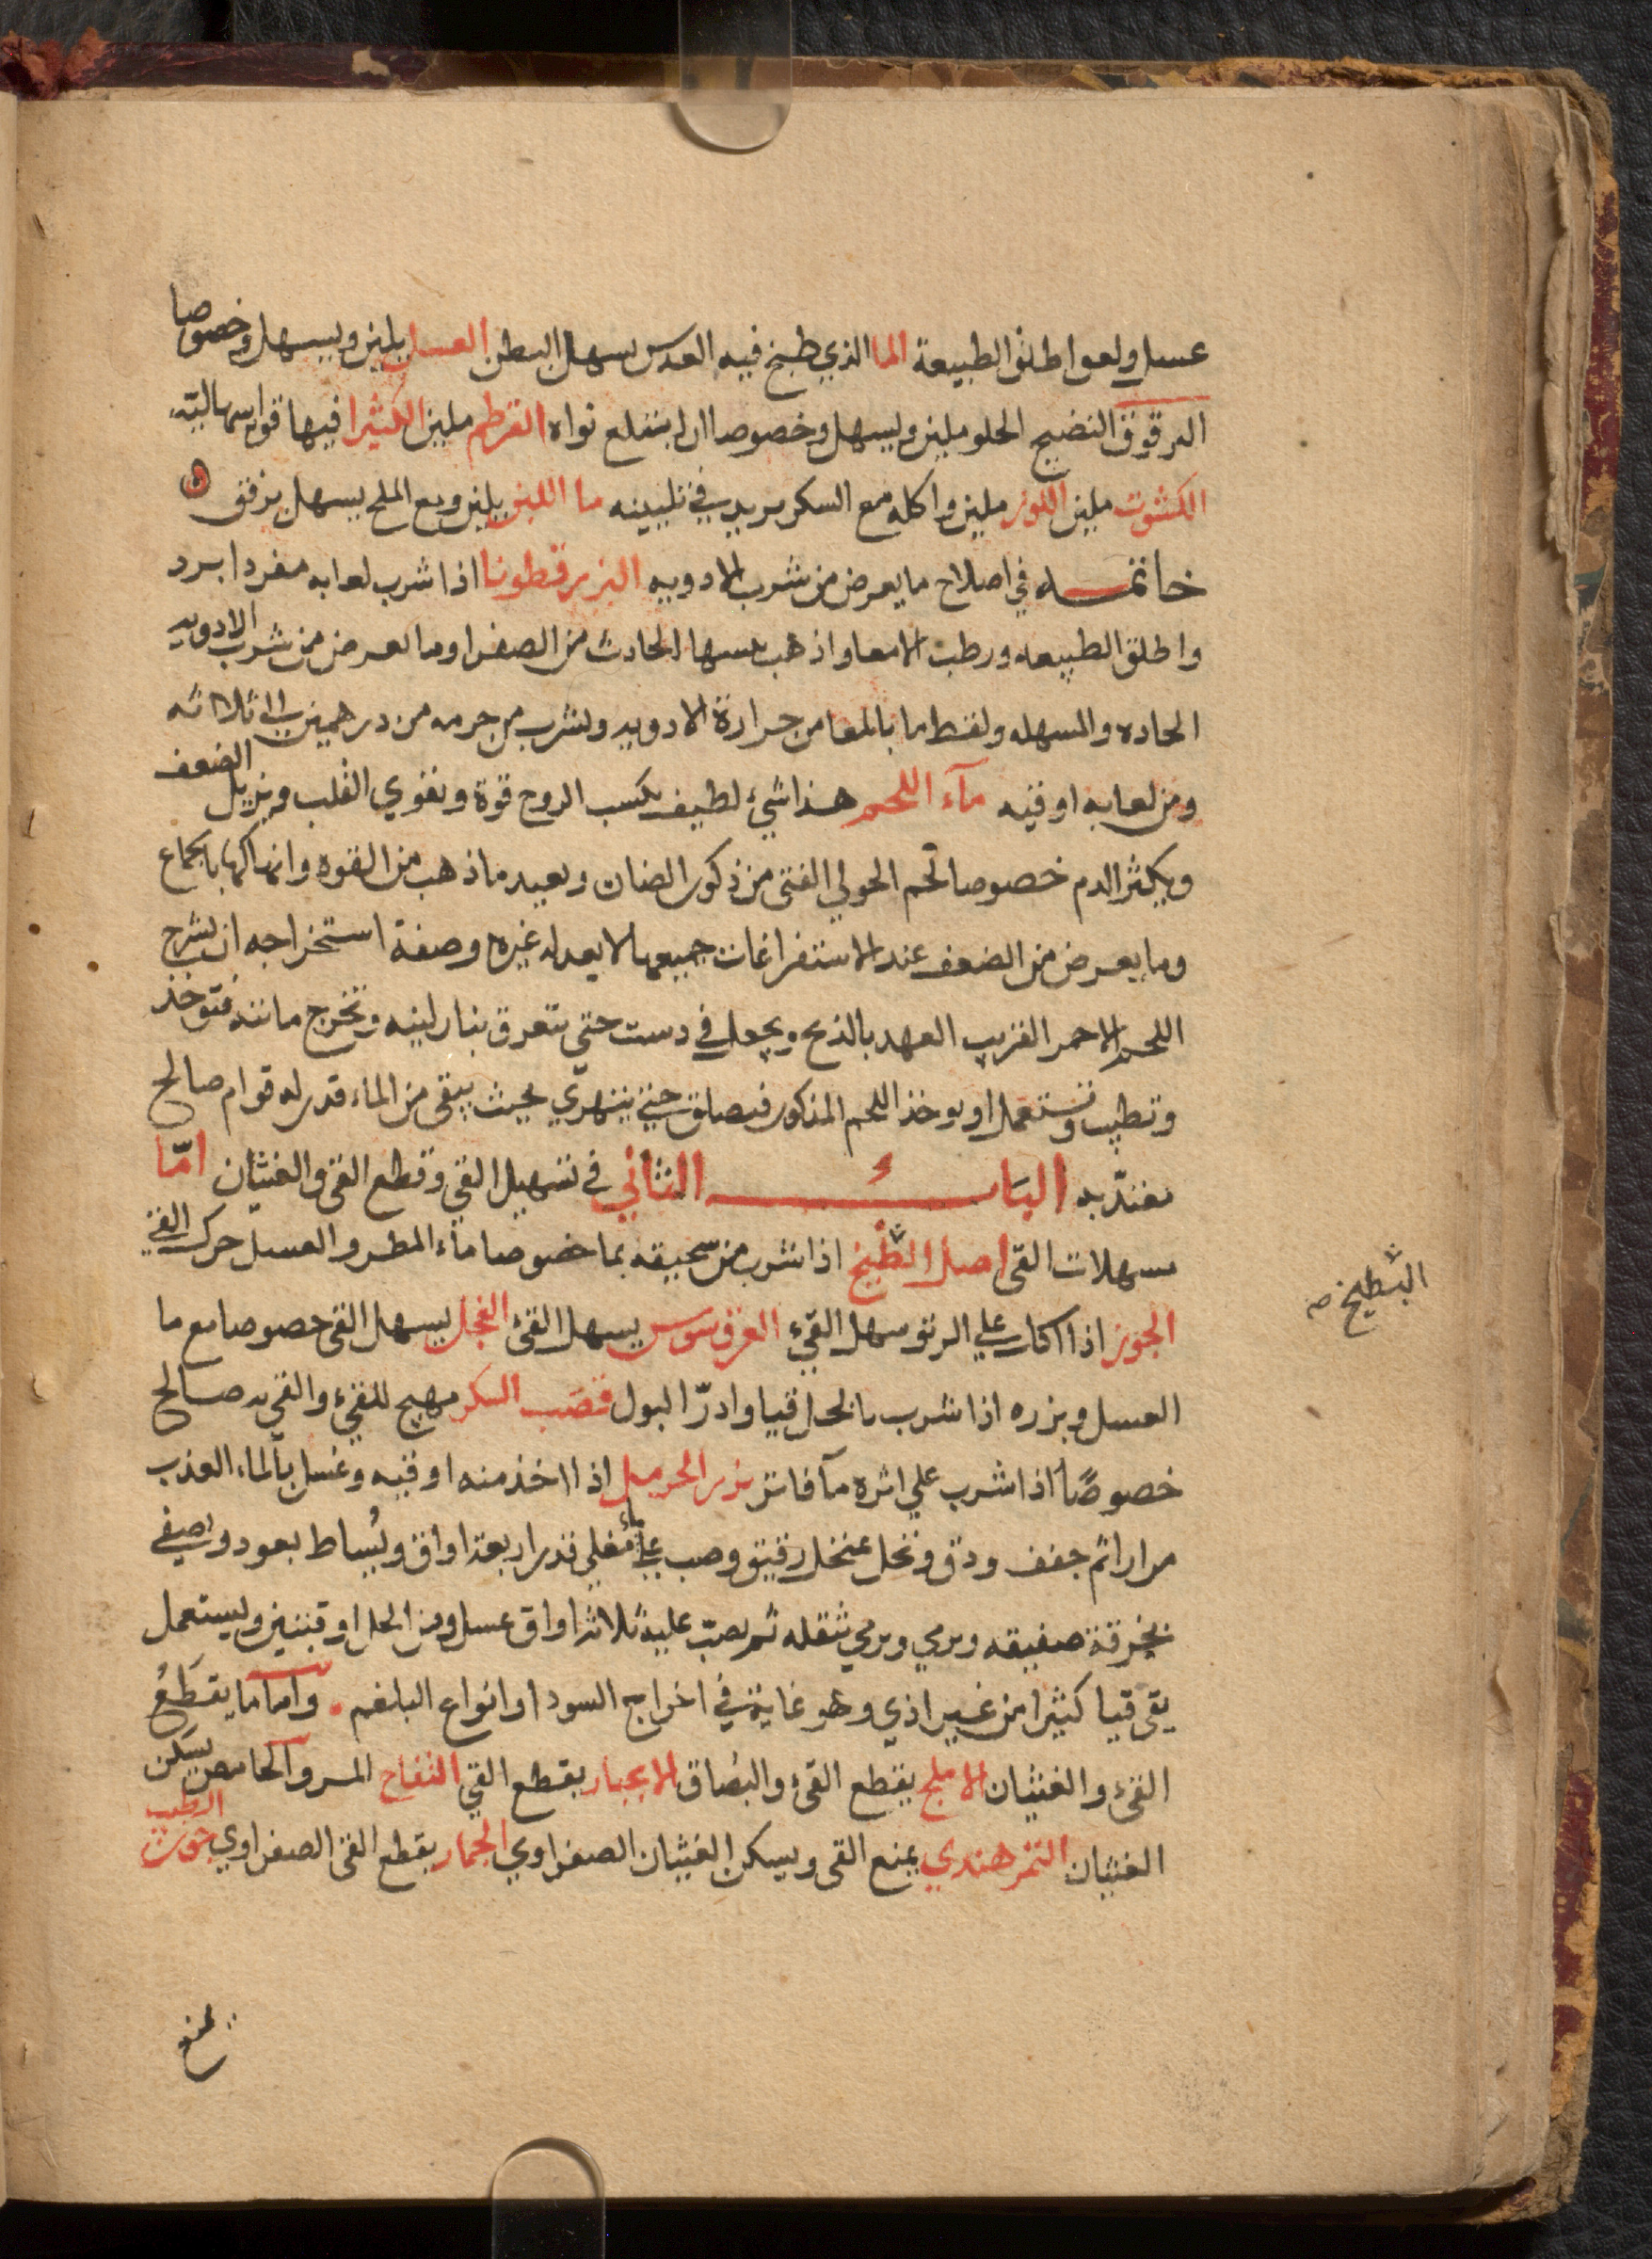 عسل ولعق اطلق الطبيعة الما الذي طبخ فيه العدس يسهل البطن العسل يلين ويسهل وخصوصا
البرقوق النضيج الحلو ملين ويسهل وخصوصا ان لم يقلع نواه القرطم ملين الكثيرا فيها قوة اسهالية
الكشوت ملين اللوز ملين واكله مع السكر يزيد في تليينه ما اللبن يلين ومع الملح يسهل برفق
خاتمه في اصلاح ما يعرض من شرب الادويه البزرقطونا اذا شرب لعابه مفردا برد
واطلق الطبيعه ورطب الامعا واذهب يبسها الحادث من الصفرا وما يعرض من شرب الادويه
الحاده والمسهله ولقط ما بالمعا من حرارة الادويه ويشرب من جرمه من درهمين الى ثلاثه
ومن لعابه اوقيه مآء اللحم هذا شيء لطيف يكسب الروح قوة ويقوي القلب ويزيل الضعف
ويكثر الدم خصوصا لحم الحولي الفتى من ذكور الضان ويعيد ما ذهب من القوه وانهاكها بالجماع
وما يعرض من الضعف عند الاستفراغات جميعها لا يعدله غيره وصفة استخراجه ان يشرح
اللحم الاحمر القريب العهد بالذبح ويجعل في دست حتى يتعرق بنار لينه وتخرج مائته فتوخذ
وتطيب وتستعمل او يوخذ اللحم المذكور فيصلق حتى يتهري بحيث يبقى من الماء قدر له قوام صالح
يعتد به الباب الثاني في تسهيل القي وقطع القي والغثيان امّا
مسهلات القي اصل البطيخ اذا شرب من سحيقه بما خصوصا مآء المطر والعسل حرك القي
البطيخ صح
الجوز اذا اكل على الريق سهل القيء العرقسوس يسهل القئ الفجل يسهل القي خصوصا مع ما
العسل وبزره اذا شرب بالخل قيا وادرّ البول قصب السكر مهيج للقيء والقي به صالح
خصوصًا اذا شرب علي اثره مآ فاتر بزر الحرمل اذا اخذ منه اوقيه وغسل بالماء العذب
مرارا ثم جفف ودق ونخل بمنخل رقيق وصب عليه ماء مغلي قدر اربعة اواق ويُساط بعود ويصفي
بخرقة صفيقه ويرمي ويرمي ثقله ثم يصب عليه ثلاثة اواق عسل ومن الخل اوقيتين ويستعمل
يقي قيا كثيرا من غير اذي وهو غاية في اخراج السودا وانواع البلغم واما ما يقطَعُ
القيء والغثيان الاملج يقطع القئ والبُصاق الانجبار يقطع القي التفاح المر والحامض يسكن
الغثيان التمر هندي يمنع القي ويسكن الغثيان الصفراوي الجمار يقطع القي الصفراوي الرطب
يمنع